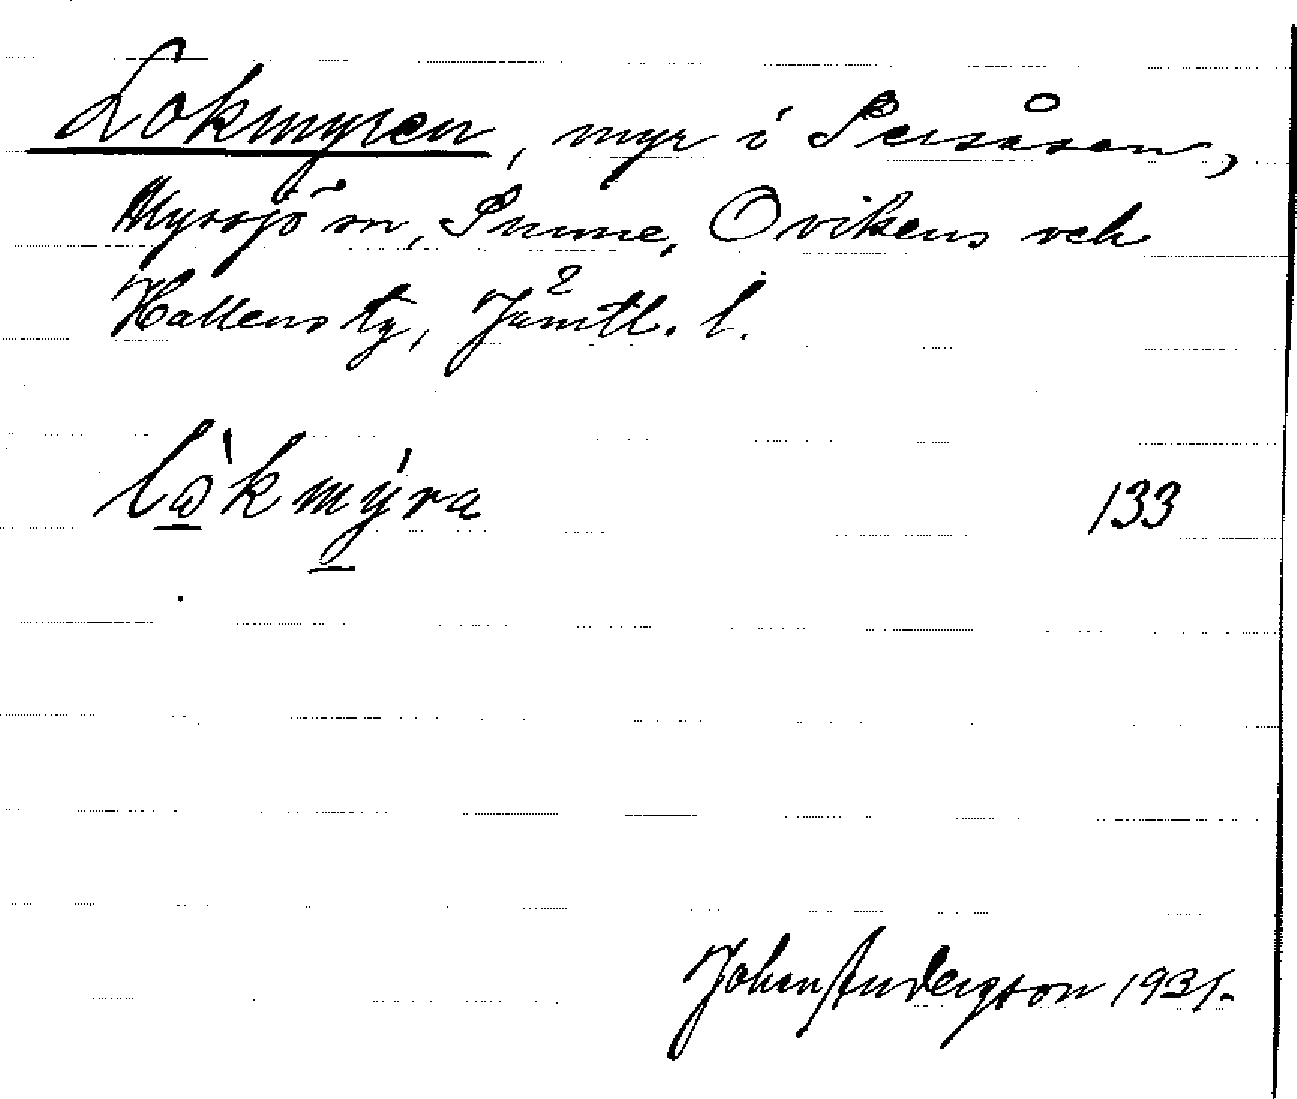 Lokmyren, myr i Persåsen,
Myssjö sn, Sunne, Ovikens och
Hallens tg, Jämtl. l.
lòkmýra 133
Johan Anderson 1931.